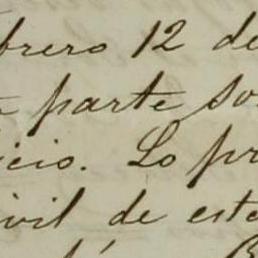 brero 12 de
parte so
icio. Lo pr
ivil de este